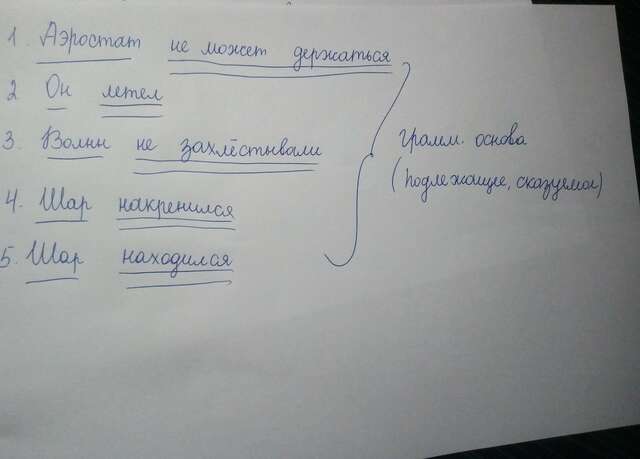 1. Аэростат не может держаться
2 Он летел
3. Волны не захлёстывали
4. Шар накренился
5. Шар находился
грамм. основа
(подлежащие, сказуемое)